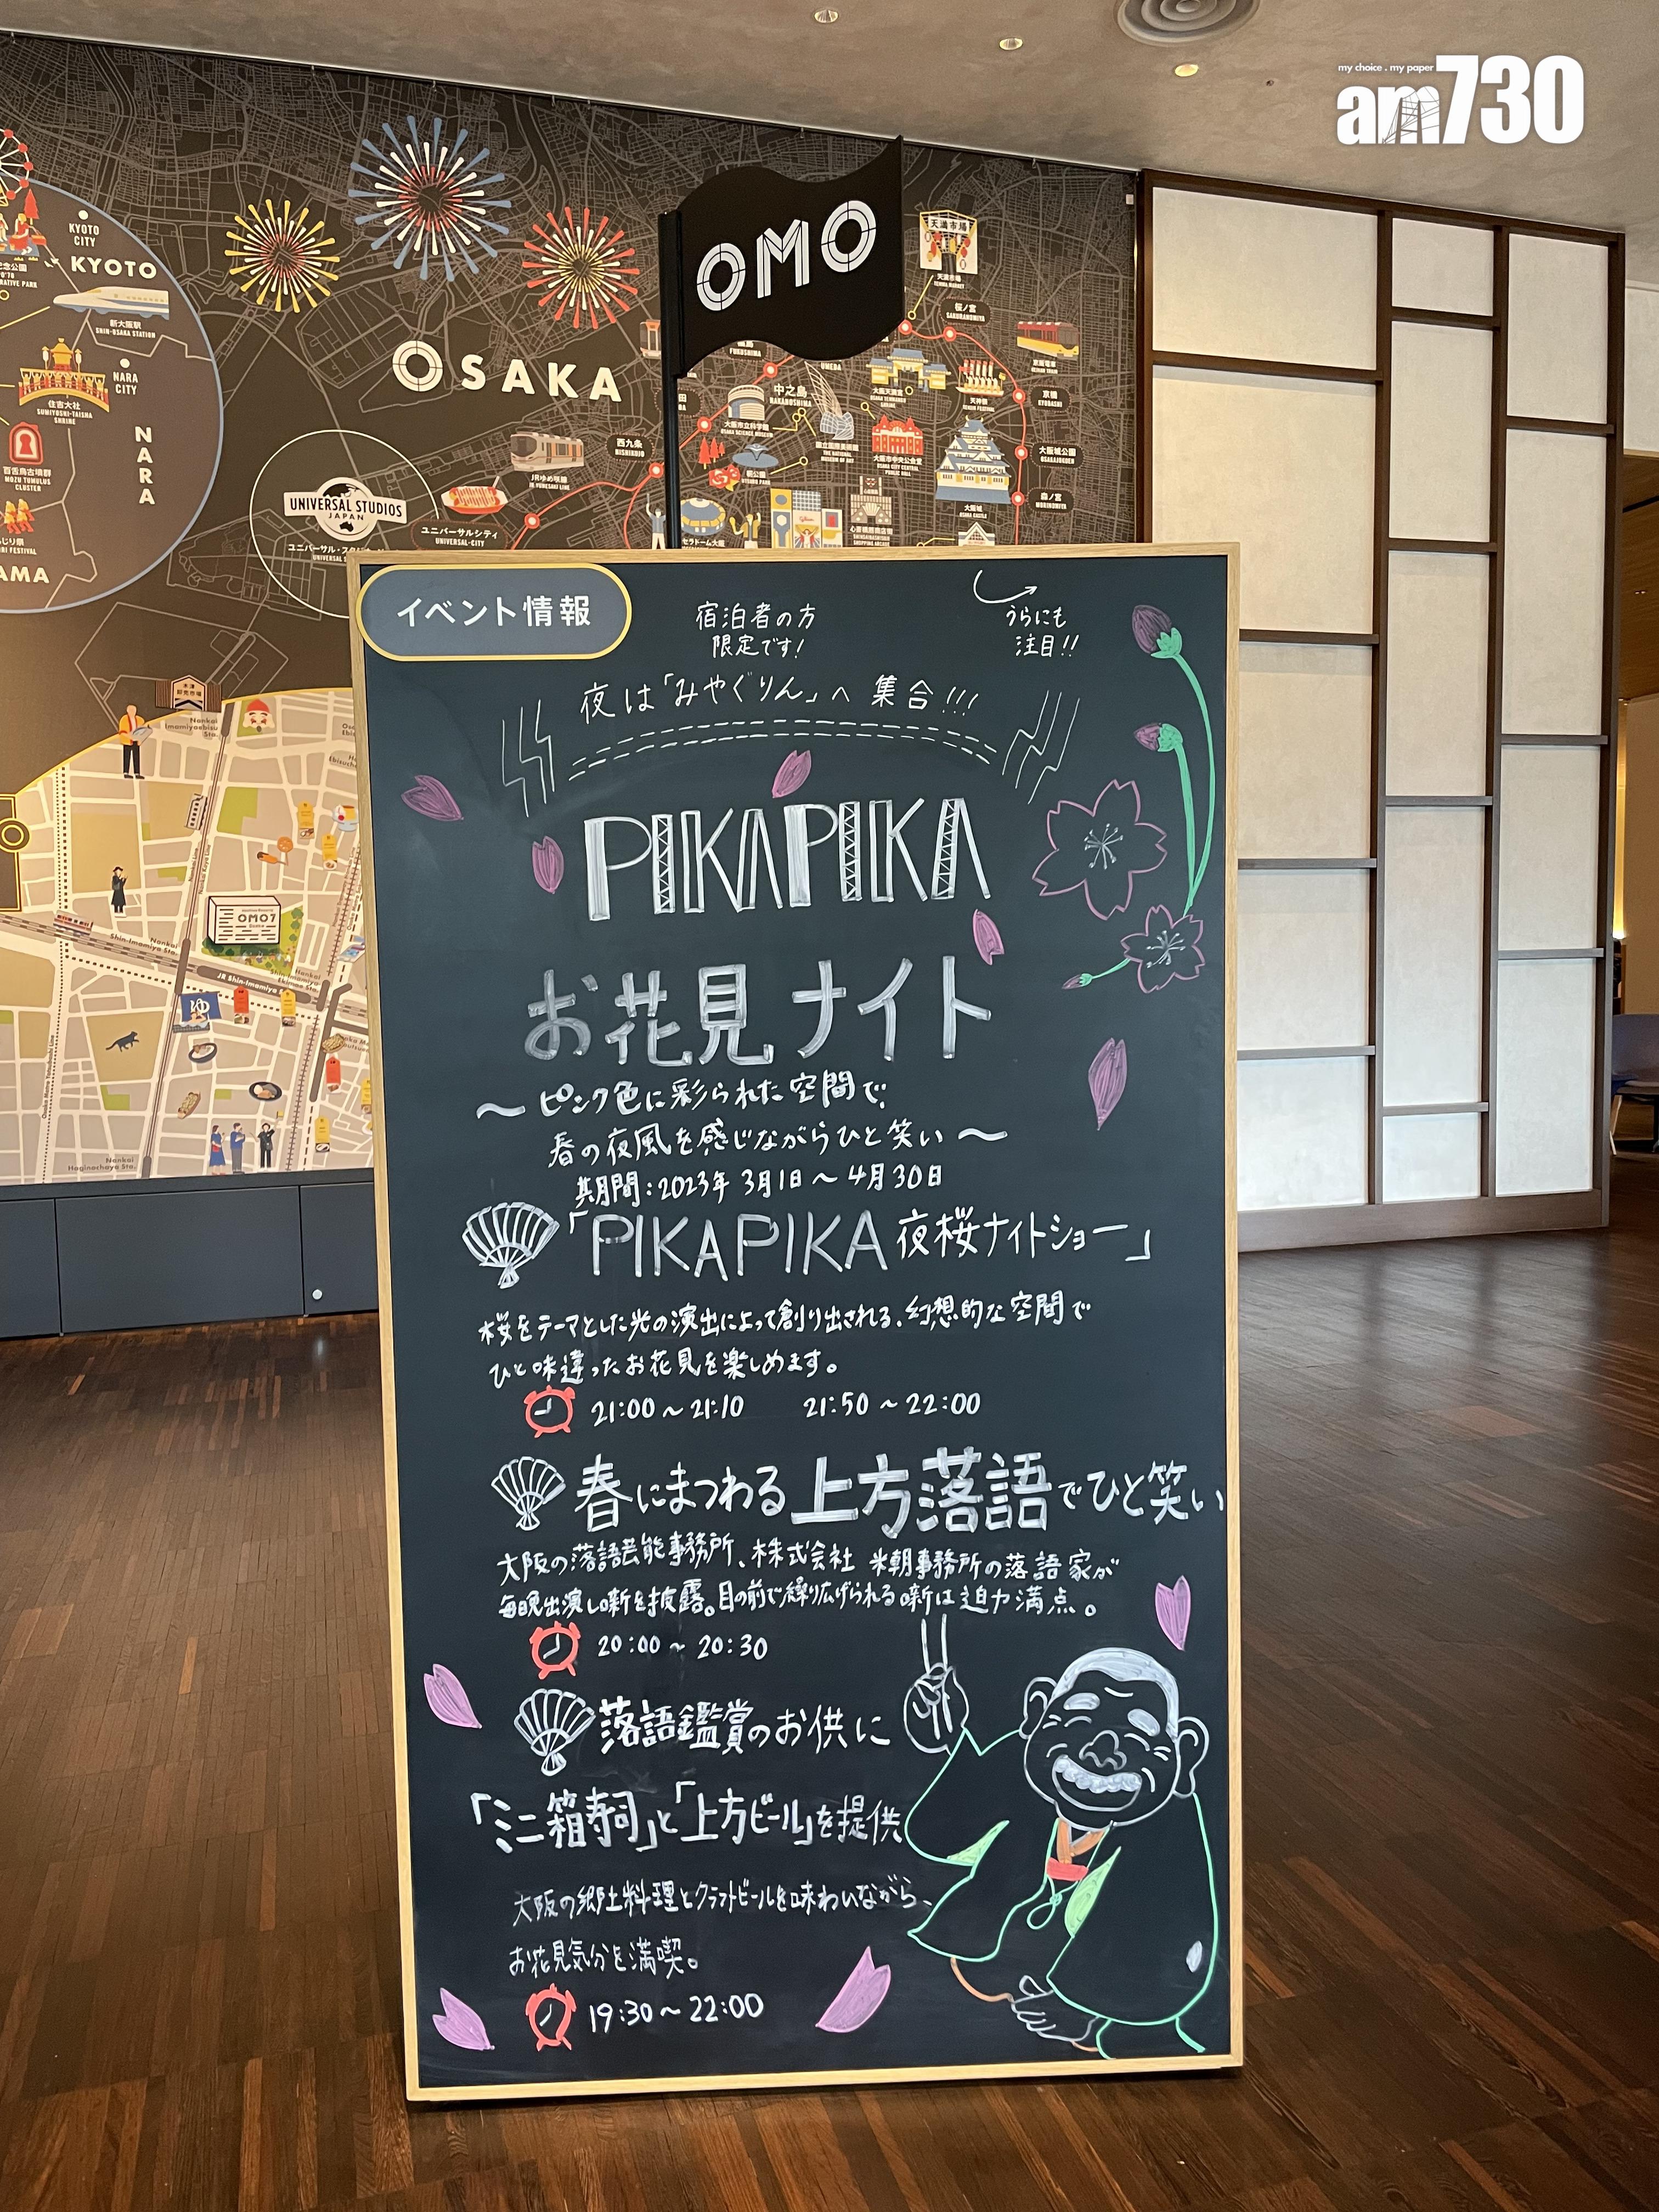 my choice . my paper
am730
OMO
KYOTO
CITY
KYOTO
新大阪駅
SHIN-OSAKA STATION
NARA
CITY
住吉大社
SUMIYOSHI-TAISHA
SHRINE
NARA
百舌鳥古墳群
MOZU TUMULUS
CLUSTER
OSAKA
UNIVERSAL STUDIOS
JAPAN
JRゆめ咲線
西九条
NISHIKUJO
ユニバーサルシティ
UNIVERSAL-CITY
FUKUSHIMA
UMEDA
中之島
NAKANOSHIMA
大阪市立科学館
天満市場
桜ノ宮
SAKURANOMIYA
京橋
KYOBASHI
大阪城公園
OSAKAJOKOEN
森ノ宮
MORINOMIYA
大阪城
OSAKA CASTLE
大阪市中央公会堂
Nankai
Imamiyaebisu
Sta.
OMO7
Nankai
Shin-Imamiya Sta.
JR Shin-Imamiya
ゆ
Nankai
Haginochaya Sta.
イベント情報
宿泊者の方
限定です!
うらにも
注目!!
夜は「みやぐりん」へ 集合!!!
PIKAPIKA
お花見ナイト
〜ピンク色に彩られた空間で、
春の夜風を感じながらひと笑い〜
期間:2023年 3月1日〜4月30日
「PIKAPIKA夜桜ナイトショー」
桜をテーマとした光の演出によって創り出される、幻想的な空間で
ひと味違ったお花見を楽しめます。
21:00〜21:10 21:50〜22:00
春にまつわる上方落語でひと笑い
大阪の落語芸能事務所、株式会社 米朝事務所の落語家が
毎晩出演し噺を披露。目の前で繰り広げられる噺は迫力満点。
20:00〜20:30
落語鑑賞のお供に
「ミニ箱寿司」と「上方ビール」を提供
大阪の郷土料理とクラフトビールを味わいながら、
お花見気分を満喫。
19:30〜22:00